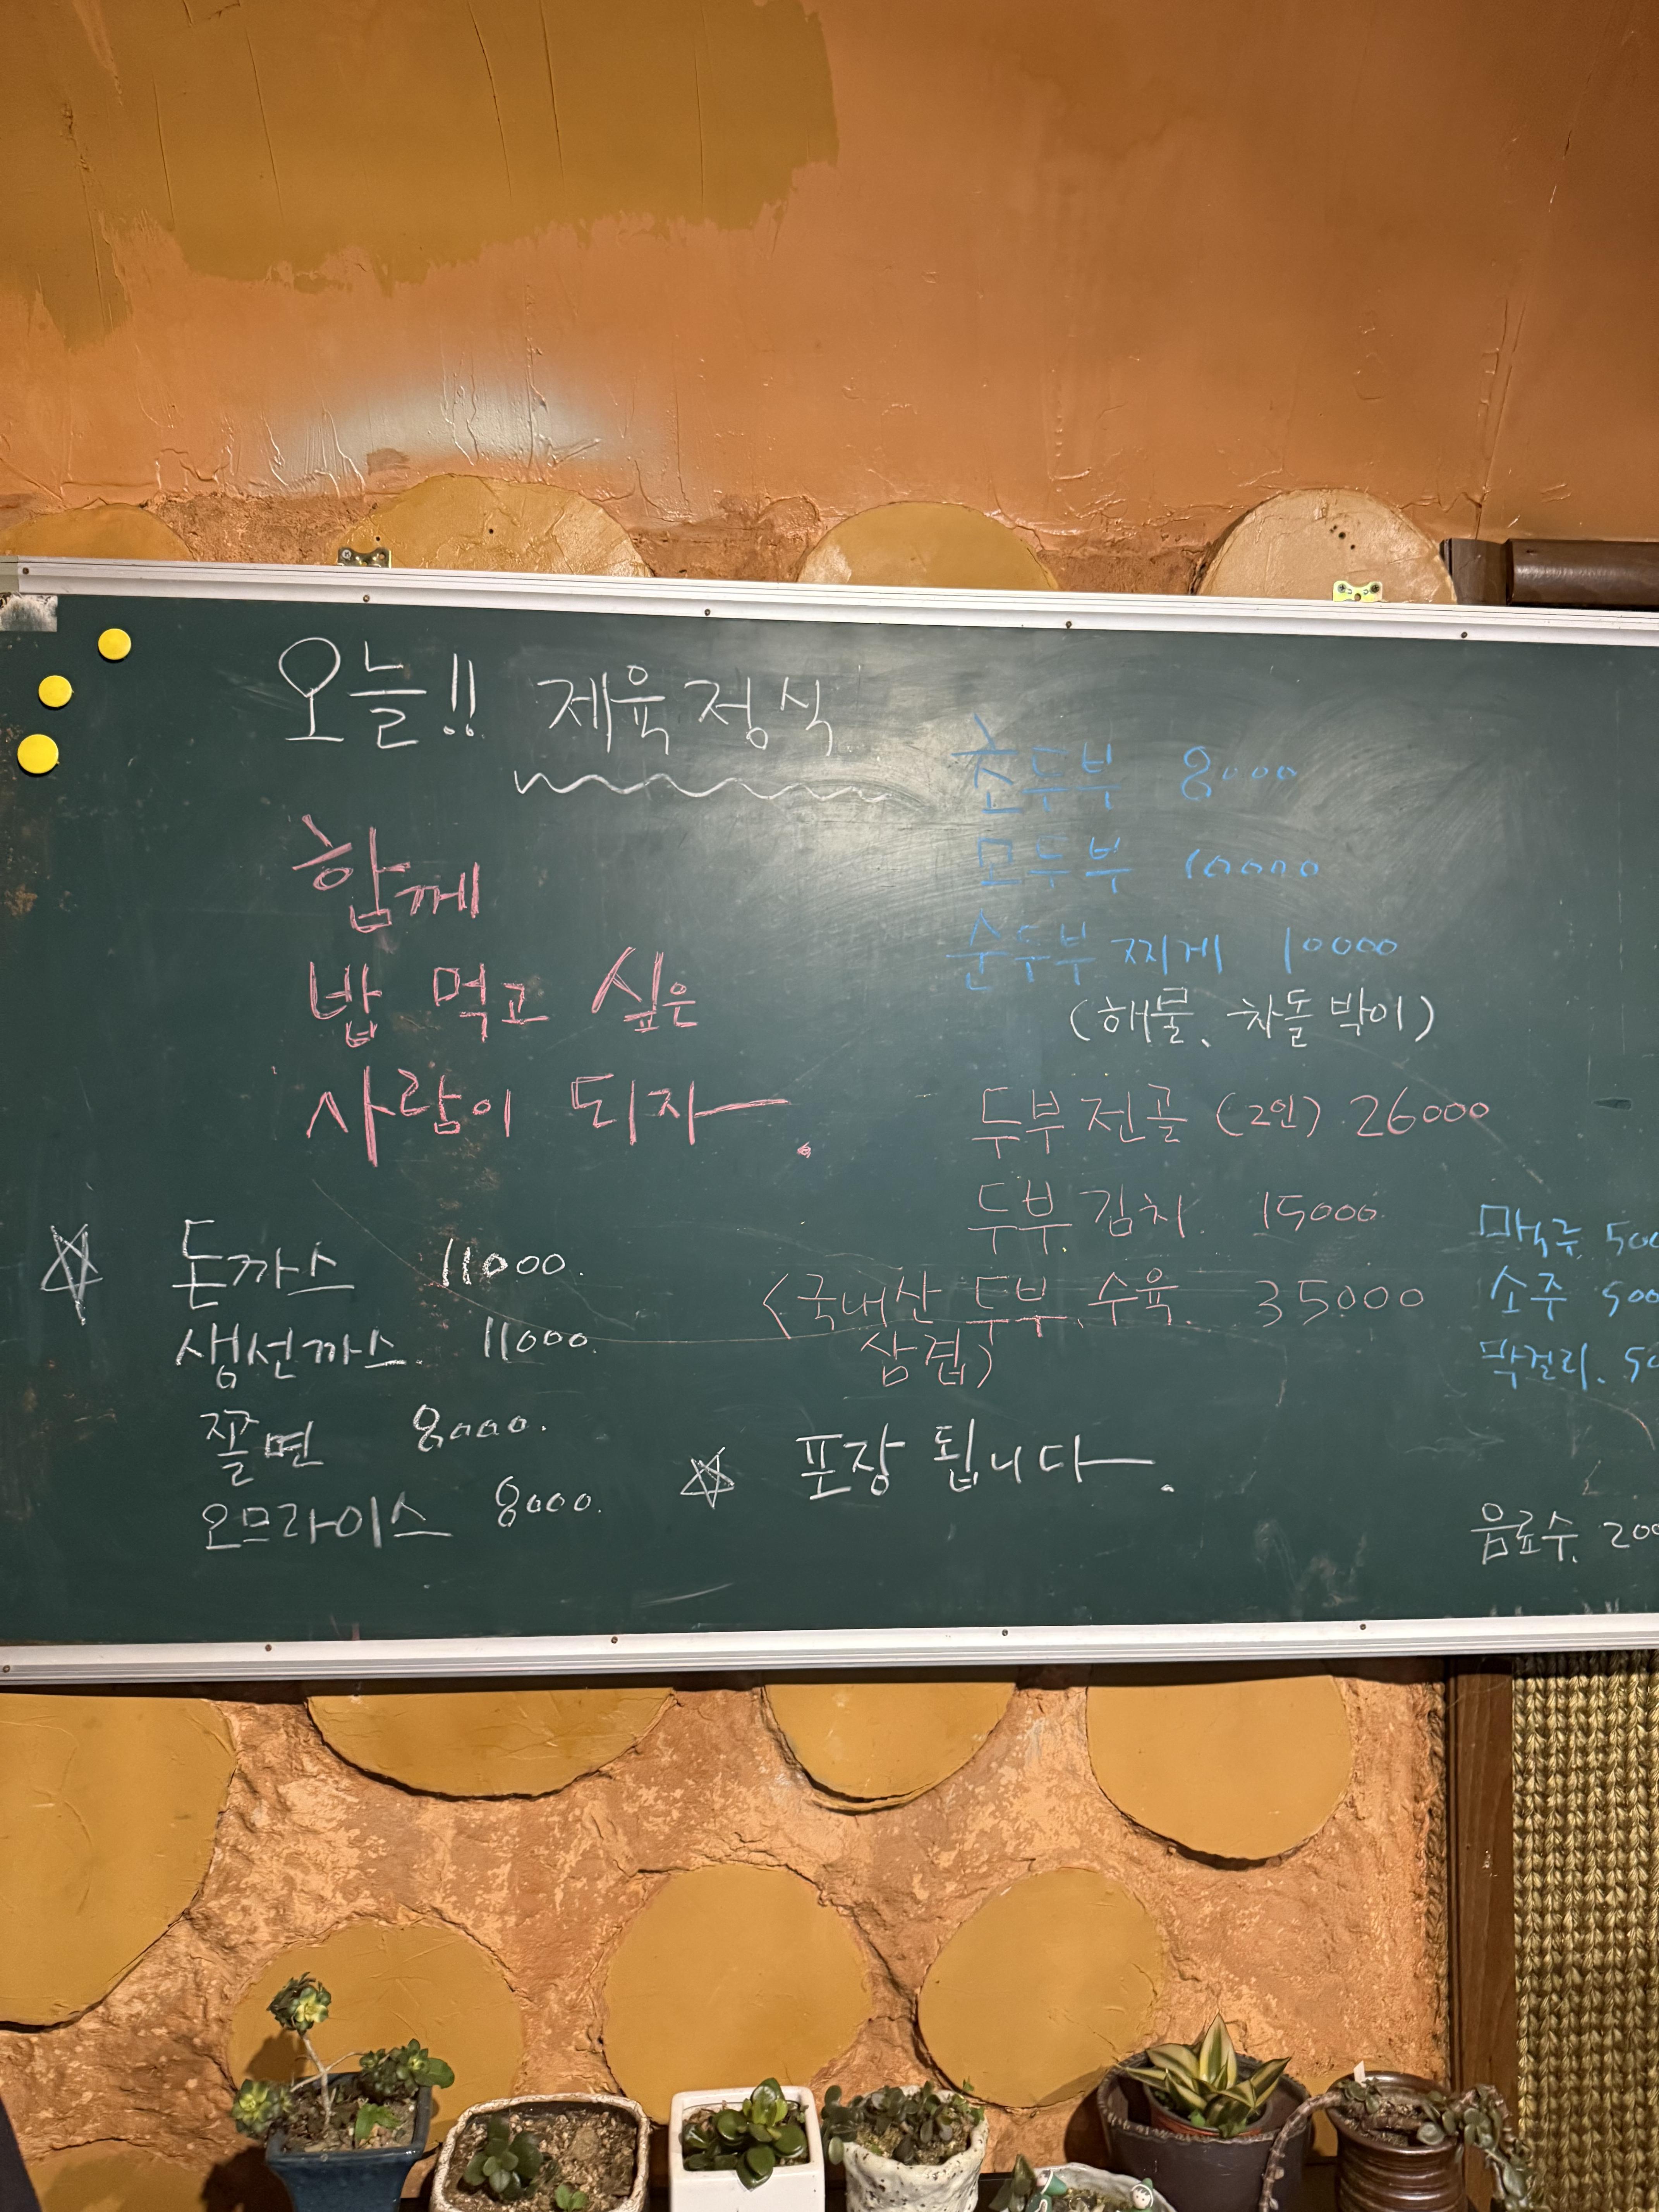 오늘!! 제육정식
함께
밥 먹고 싶은
사람이 되자.
초두부 8000
모두부 10000
순두부찌게 10000
(해물, 차돌박이)
두부전골 (2인) 26000
두부.김치. 15000
<국내산 두부.수육. 35000
삼겹>
☆ 돈까스 11000.
생선까스. 11000.
쫄면 8000.
오므라이스 8000.
☆ 포장 됩니다.
맥주. 500
소주 500
막걸리. 50
음료수. 200